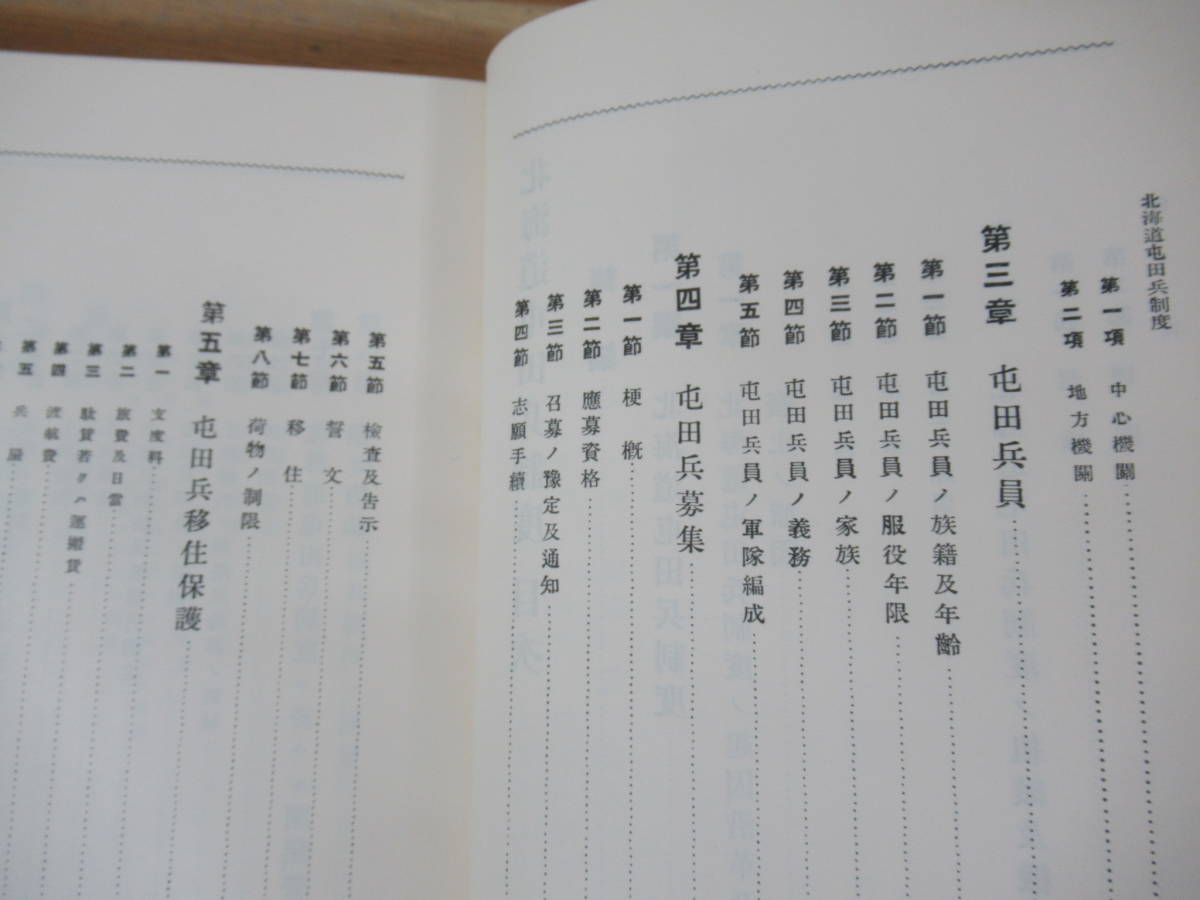 北海道屯田兵制度
第一項 中心機關
第二項 地方機關
第三章 屯田兵員
第一節 屯田兵員ノ族籍及年齡
第二節 屯田兵員ノ服役年限
第三節 屯田兵員ノ家族
第四節 屯田兵員ノ義務
第五節 屯田兵員ノ軍隊編成
第四章 屯田兵募集
第一節 梗概
第二節 應募資格
第三節 召募ノ豫定及通知
第四節 志願手續
第五節 檢査及告示
第六節 誓文
第七節 移住
第八節 荷物ノ制限
第五章 屯田兵移住保護
第一 支度料
第二 旅費及日當
第三 駄賃若クハ運搬賃
第四 渡航費
第五 兵屋